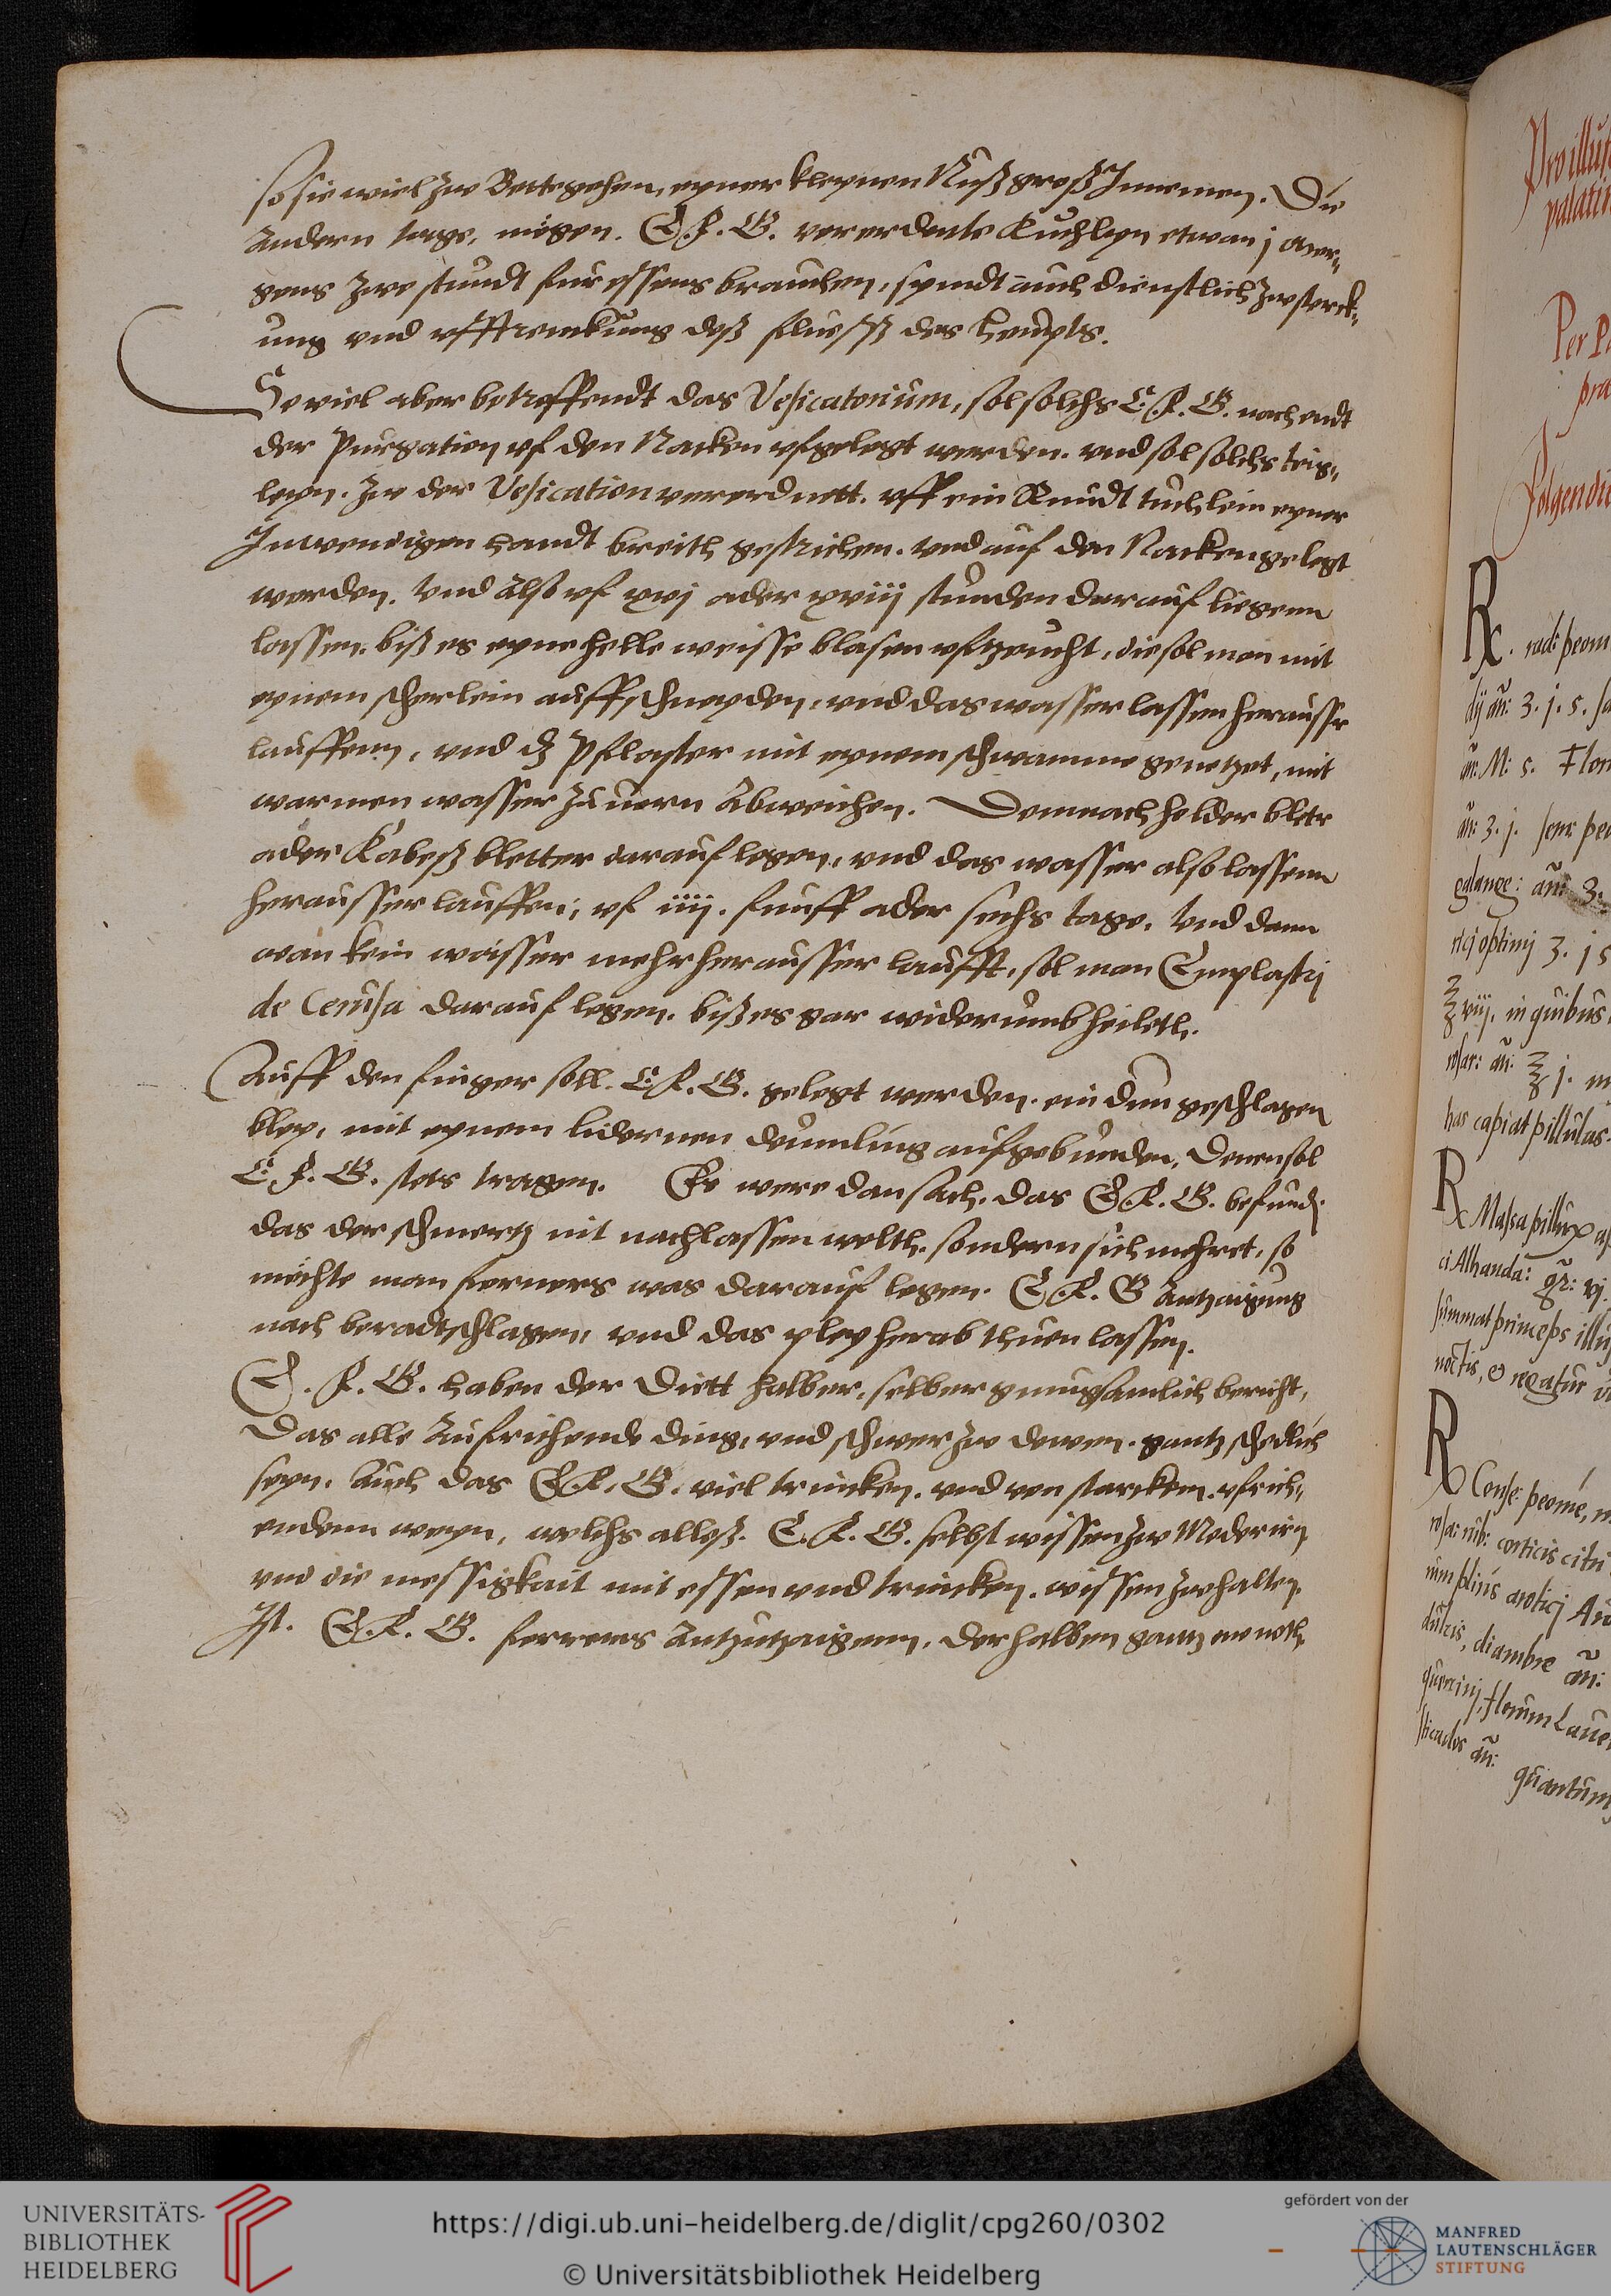 so sie wiel zw Bettegehen, eyner kleynen Nuß groß Innemen. Die
Andern tage, mögen. E. F. G. ververdente Kuchleyn etwan j
gens zwo stundt fur essens brauchen, seyndt auch dienstlich zw sterck„
ung vnd vfftrenckung deß flusß des heupts.
So viel aber betreffendt das Vesicatorium, sol solchs E. F. G. nach endt
der Purgation vf den Nacken vfgelegt werden. vnd sol solchs teig„
leyn. zw der Vesication ververdnett. vff ein Rundt tuchlein eyner
Inwendigen handt breith gestrichen. vnd auf den Nacken gelegt
werden. Vnd Also vf xvj ader xviij stunden darauf liegenn
lassen. biß es eyne helle weisse blasen vftzeucht, die sol man mit
eynem scherlein auffschneyden, vnd das wasser lassen herausser
lauffenn, vnd dz Pflaster mit eynem schwamme genetzet, mit
warmen wasser zuuorn Abweichen. Demnach holder bletr
ader Kabeß bletter darauf legen, vnd das wasser also lassenn
herausser lauffen, vf iiij. funff ader sechs tage. Vnd dann
wan kein wasser mehr herausser laufft, sol man Emplastrj
de Cerusa darauf legen. biß es gar widerumb heileth.
Auff den finger soll. E. F. G. gelegt werden. ein dun geschlagen
bley, mit eynem lidernen deumling aufgebunden, Denen sol
E. F. G. stets tragen. Es were dan sach, das E. F. G. befundt
das der schmertz nit nachlassen wolth. sondern sich mehret, so
möchte man ferners was darauf legen. E. F. G Antzaigung
nach beradtschlagen, vnd das pley herab thuen lassen.
E. F. G. haben der Diett halber, selber gnugsamlich bericht,
Das alle Aufriehende ding, vnd schwer zw dewen. gantz schedlich
seyn. Auch das E. F. G. viel trincken. vnd von starcken. vfriech„
endenn weyn, welchs alleß. E. F. G. selbst wissen zw Moderirn
vnd die messigkait mit essen vnd trincken. wissen zw halten.
Ist. E. F. G. ferrers Antzutzaigenn, derhalben gantz one noth.
Pro illus
palatin
Per P
pra
Folgen die
℞. rad: peoni
an: ʒ. j. s.
an: M: s. Flor
an: ʒ. j. sem: peo
galange: an: ʒ.
optimj ʒ. j s
℥ viij. in quibus
rosar: an: ℥ j. m
has capiat pillulas.
℞ Massa pillux
ci Alhanda: gr: vj.
summat princeps illus
noctis, & regatur
℞ Conse: peonie,
rosar: rub: corticis citri
diambre an:
florum Laue
sticados an: quantum
UNIVERSITÄTS-
BIBLIOTHEK
HEIDELBERG
https://digi.ub.uni-heidelberg.de/diglit/cpg260/0302
© Universitätsbibliothek Heidelberg
gefördert von der
MANFRED
LAUTENSCHLÄGER
STIFTUNG